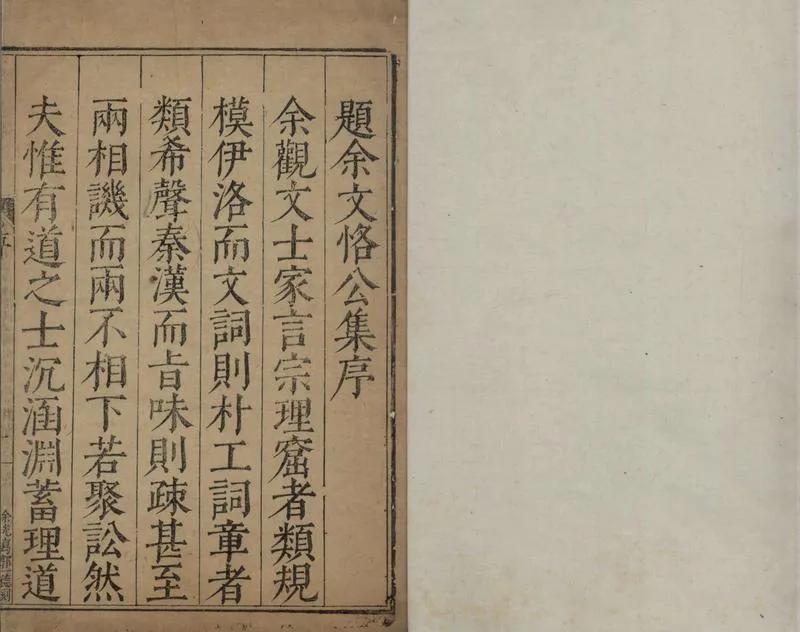 題余文恪公集序
余觀文士家言宗理窟者類規
模伊洛而文詞則朴工詞章者
類希聲秦漢而旨味則疎甚至
兩相譏而兩不相下若聚訟然
夫惟有道之士沉涵淵蓄理道
序